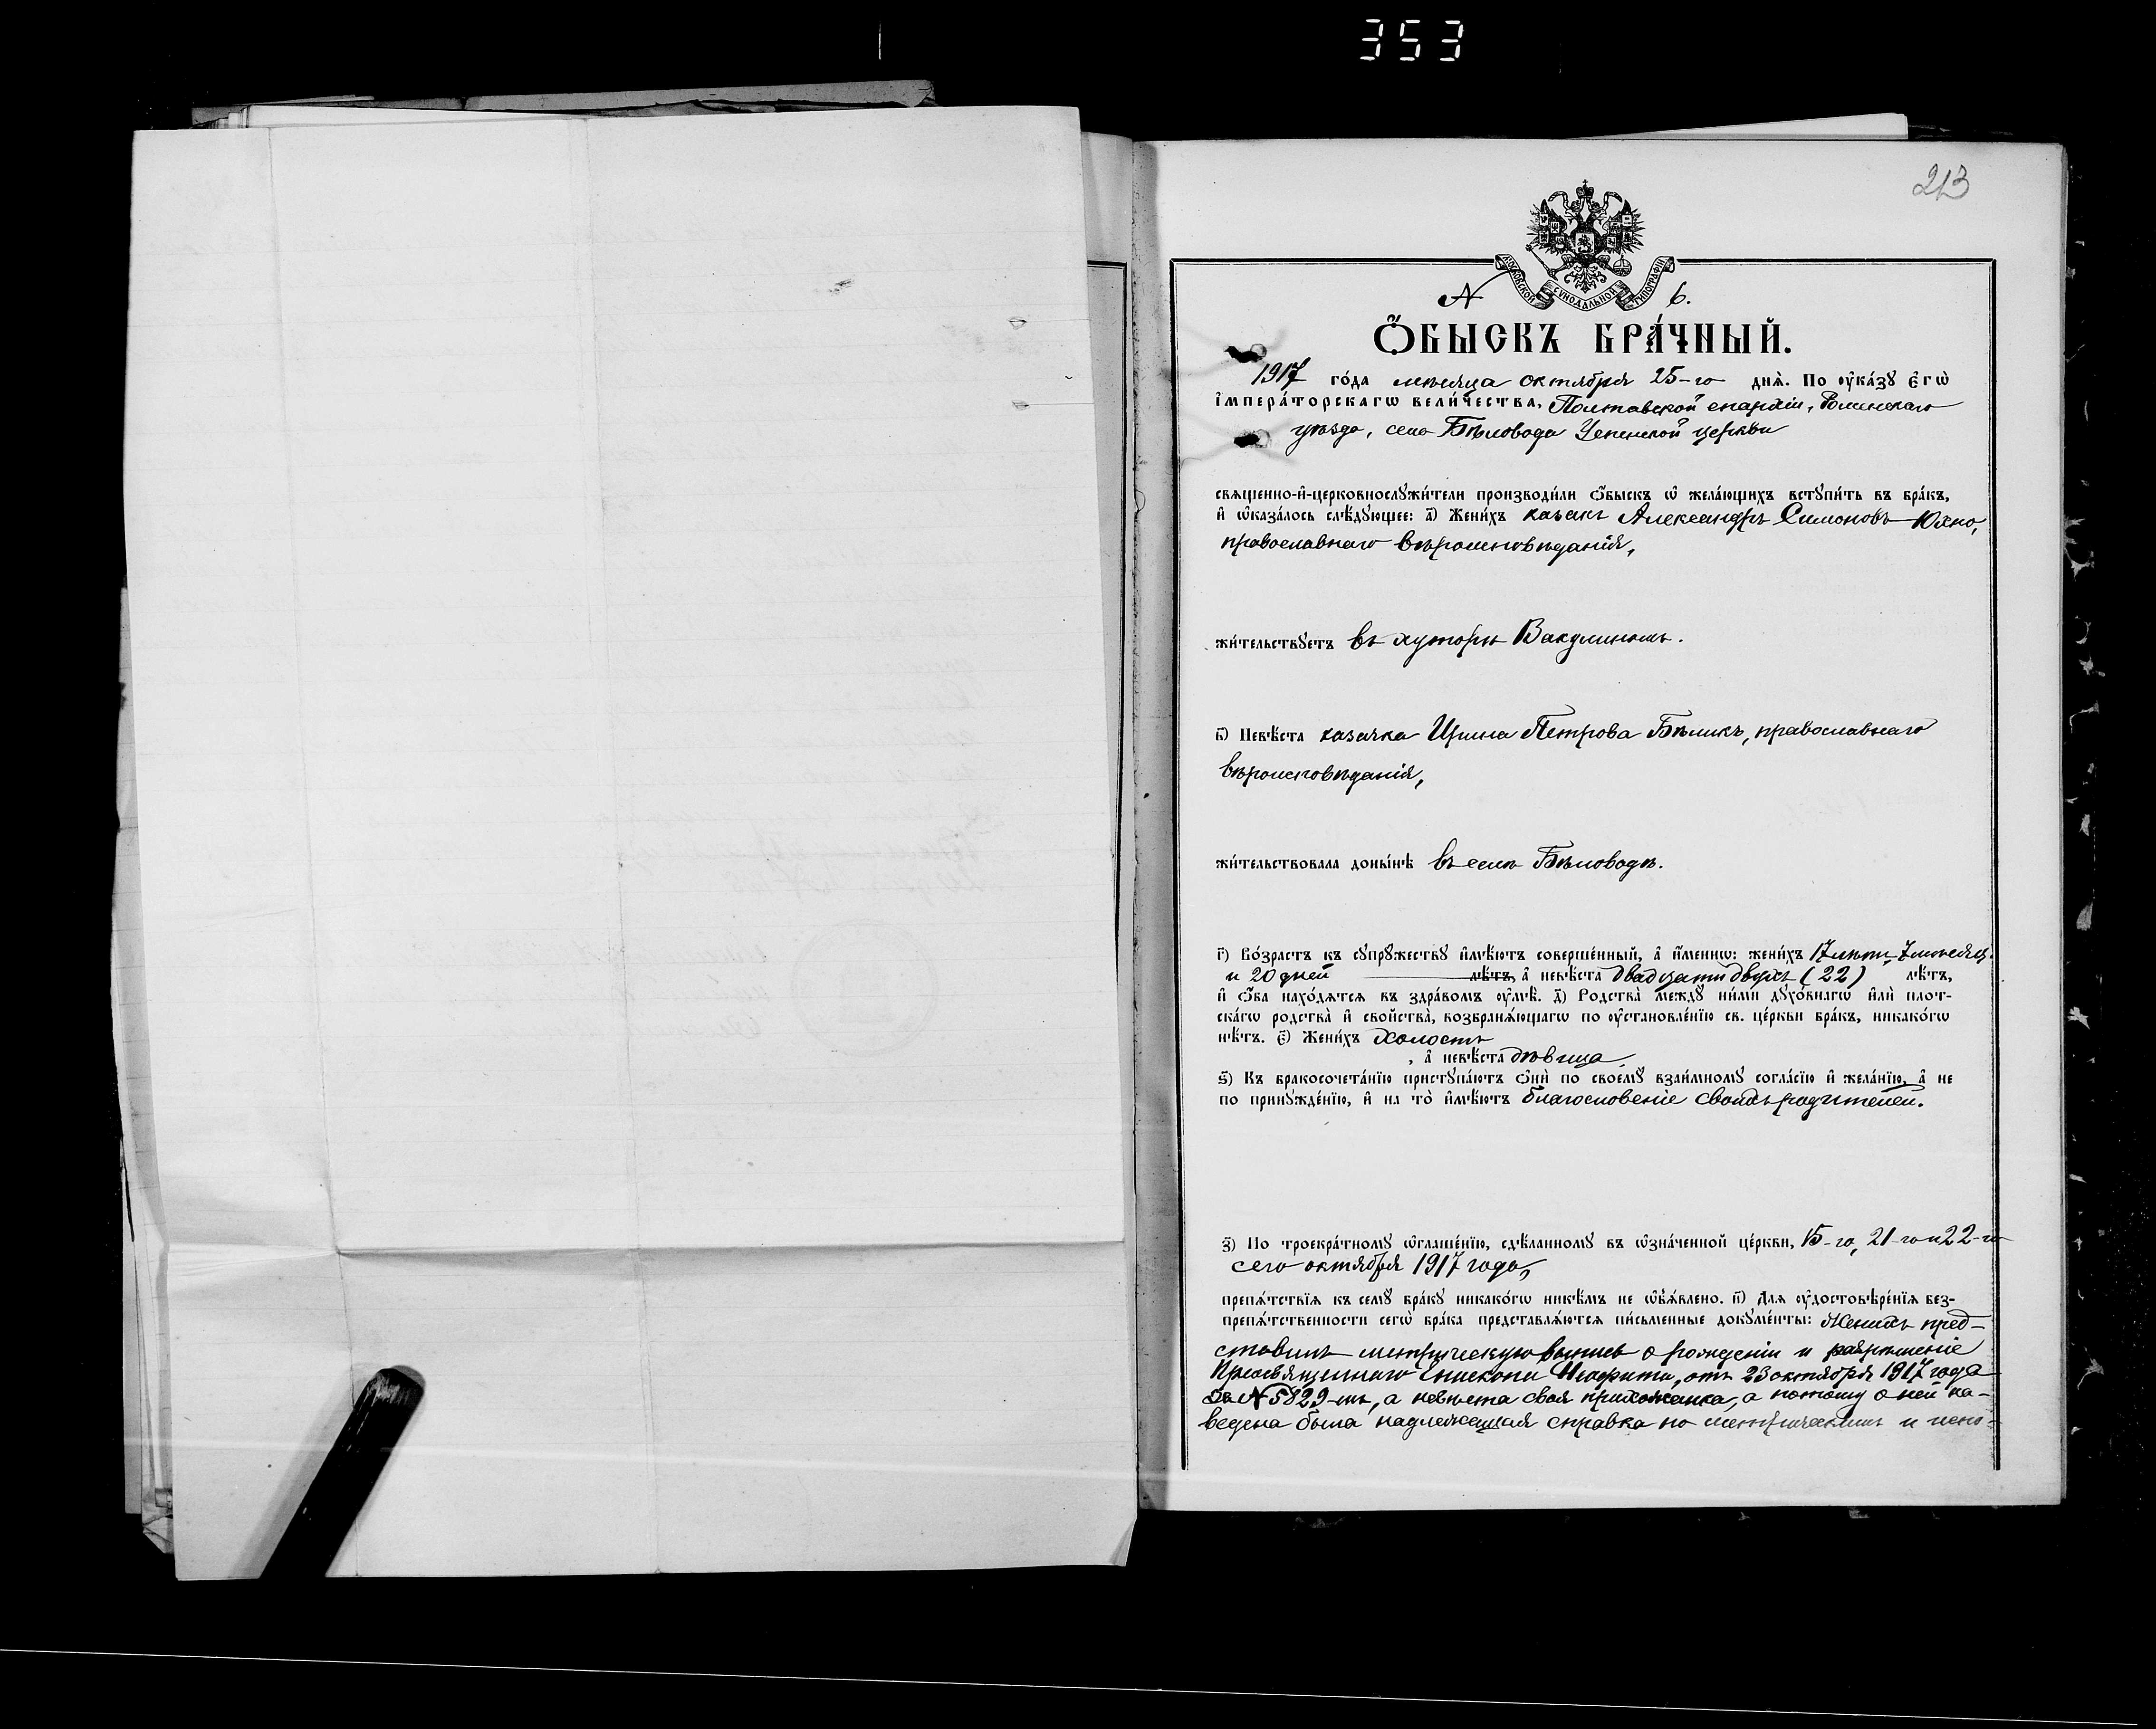 353
213
МОСКОВСКОЙ СѴНОДАЛЬНОЙ ТИПОГРАФІИ
N 6.
Ѻ҆БЫСКЪ БРА́ЧНЫЙ.
1917 го́да мѣсяца октября 25-го днѧ̀. По ᲂу҆ка́зꙋ є҆гѡ̀
і҆мпера́торскагѡ вели́чества, Полтавской епархіи, Роменскаго
уѣзда, села Бѣловода Успенской церкви
свѧщенно-и҆-церковнослꙋжи́тели производи́ли ѻ҆́быскъ ѡ҆ жела́ющихъ встꙋпи́ть въ бра́къ,
и҆ ѡ҆каза́лось слѣ́дꙋющее: а҃) Жени́хъ казакъ Александръ Симоновъ Юхно,
православнаго вѣроисповѣданія,
жи́тельствꙋетъ въ хуторѣ Вакулиномъ.
в҃) Невѣ́ста казачка Ирина Петрова Бѣликъ, православнаго
вѣроисповѣданія,
жи́тельствовала доны́нѣ въ селѣ Бѣловодѣ.
г҃) Во́зрастъ къ сꙋпрꙋ́жествꙋ и҆мѣ́ютъ соверше́нный, а҆ и҆́меннѡ: жени́хъ 17 лѣтъ, 7 мѣсяц.
и 20 дней лѣ́тъ, а҆ невѣ́ста двадцати двухъ (22) лѣ́тъ,
и҆ ѻ҆́ба нахо́дѧтсѧ въ здра́вомъ ᲂу҆мѣ̀. д҃) Родства̀ междꙋ̀ ни́ми дꙋхо́внагѡ и҆лѝ плот-
ска́гѡ родства̀ и҆ свойства̀, возбранѧ́ющагѡ по ᲂу҆становле́нїю св. це́ркви бра́къ, никако́гѡ
нѣ́тъ. є҃) Жени́хъ холостъ
, а҆ невѣ́ста дѣвица
ѕ҃) Къ бракосочета́нїю пристꙋпа́ютъ ѻ҆нѝ по своемꙋ̀ взаи́мномꙋ согла́сїю и҆ жела́нїю, а҆ не
по принꙋжде́нїю, и҆ на то̀ и҆мѣ́ютъ благословеніе своихъ родителей.
з҃) По троекра́тномꙋ ѡ҆глаше́нїю, сдѣ́ланномꙋ въ ѡ҆зна́ченной це́ркви, 15-го, 21-го и 22-го
сего октября 1917 года,
препѧ́тствїѧ къ семꙋ̀ бра́кꙋ никако́гѡ никѣ́мъ не ѡ҆б̾ѧ́влено. и҃) Длѧ ᲂу҆достовѣре́нїѧ без-
препѧ́тственности сегѡ̀ бра́ка представлѧ́ютсѧ пи́сьменные докꙋме́нты: Женихъ пред-
ставилъ метрическую выпись о рожденіи и разрѣшеніе
Преосвященнаго Епископа Неофита, отъ 23 октября 1917 года
за N 5829-мъ, а невѣста своя прихожанка, а потому о ней на-
ведена была надлежащая справка по метрическимъ и испо-